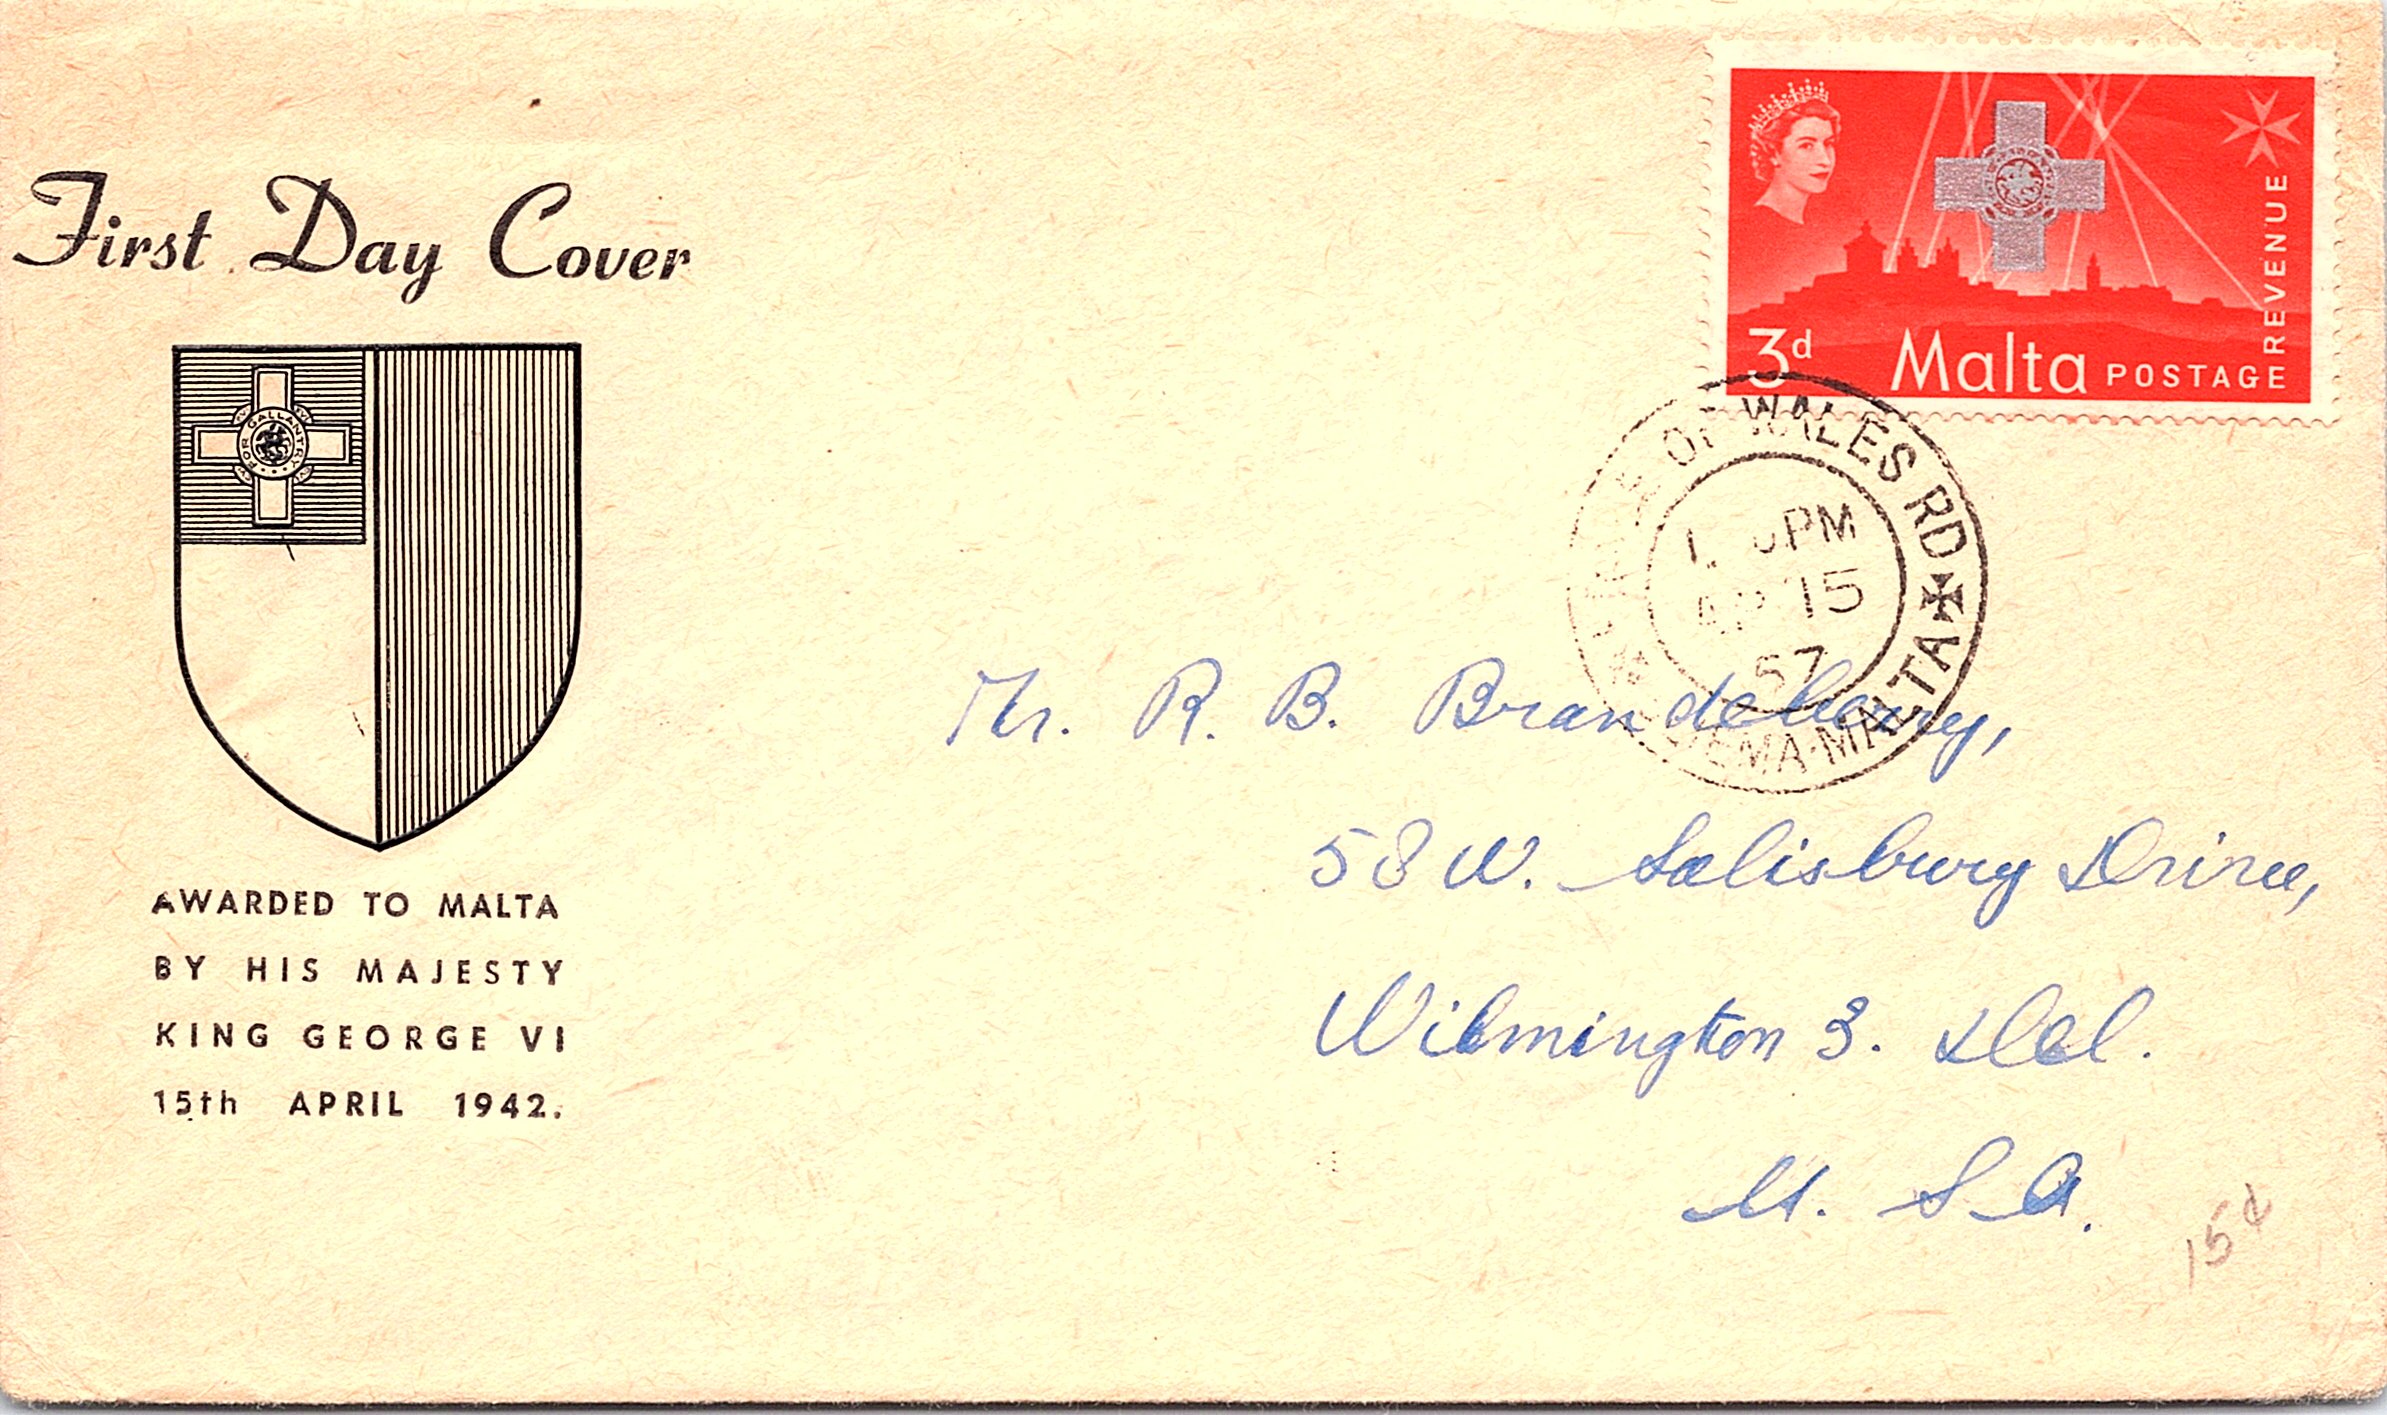 First Day Cover
FOR GALLANTRY
AWARDED TO MALTA
BY HIS MAJESTY
KING GEORGE VI
15th APRIL 1942.
3d Malta POSTAGE REVENUE
OF WALES RD
PM
15
57
MALTA
Mr. R. B. Brandeberry,
58 W. Salisbury Drive,
Wilmington 3. Del.
U. S. A.
15¢